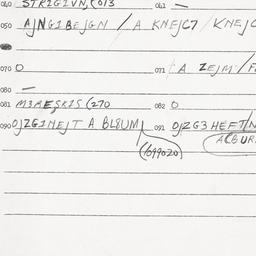 040 STRZGIVN,(013 041 —
050 AJNG1BEJGN / A KNEJC7 / KNEJC
070 O 071 A ZEJM/F
080 —
081 M3RE,SKIS (270 082 O
090 OJZG1NEJT A BL8UM, 091 OJZG3HEFT/N
(1699020) ACBUR